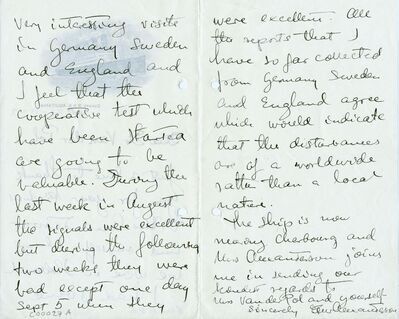 very interesting visits
in Germany Sweden
and England and
I feel that the
cooperative test which
have been started
are going to be
valuable. During the
last week in August
the signals were excellent
but during the following
two weeks they were
bad except one day
Sept 5 when they
C00024A
were excellent. All
the reports that I
have so far collected
from Germany Sweden
and England agree
which would indicate
that the disturbances
are of a worldwide
rather than a local
nature.
The ship is now
nearing Cherbourg and
Mrs Alexanderson joins
me in sending our
kindest regards to
Mrs Van der Pol and yourself
Sincerely EFW Alexanderson